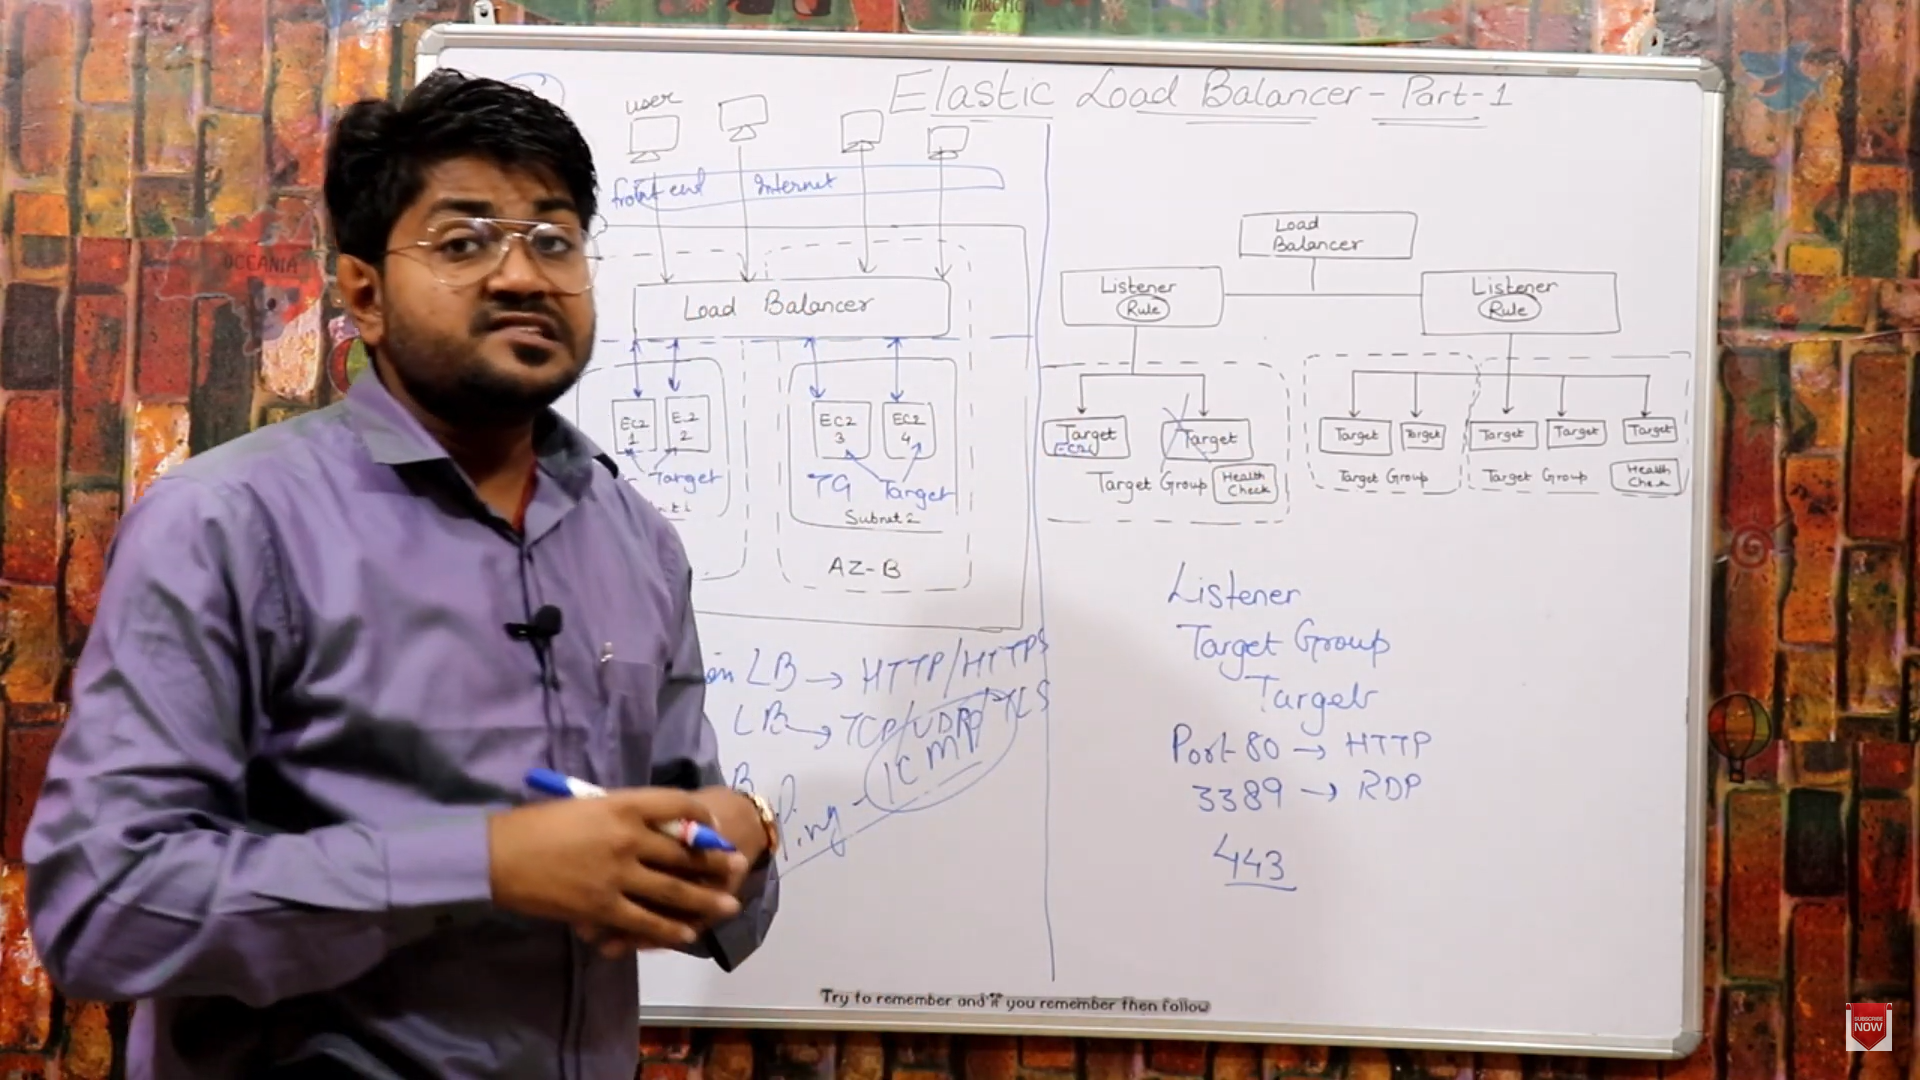 ANTARCTICA
OCEANIA
Elastic Load Balancer - Part-1
user
front end Internet
Load Balancer
EC2 1
EC2 2
EC2 3
EC2 4
Target
TG Target
Subnet 2
AZ-B
LB → HTTP/HTTPS
LB → TCP/UDP/TLS
B
Ping - ICMP
Load Balancer
Listener
Rule
Listener
Rule
Target
EC2
Target
Target Group
Health Check
Target
Target
Target Group
Target
Target
Target
Target Group
Health Check
Listener
Target Group
Target
Port 80 → HTTP
3389 → RDP
443
Try to remember and if you remember then follow
SUBSCRIBE
NOW